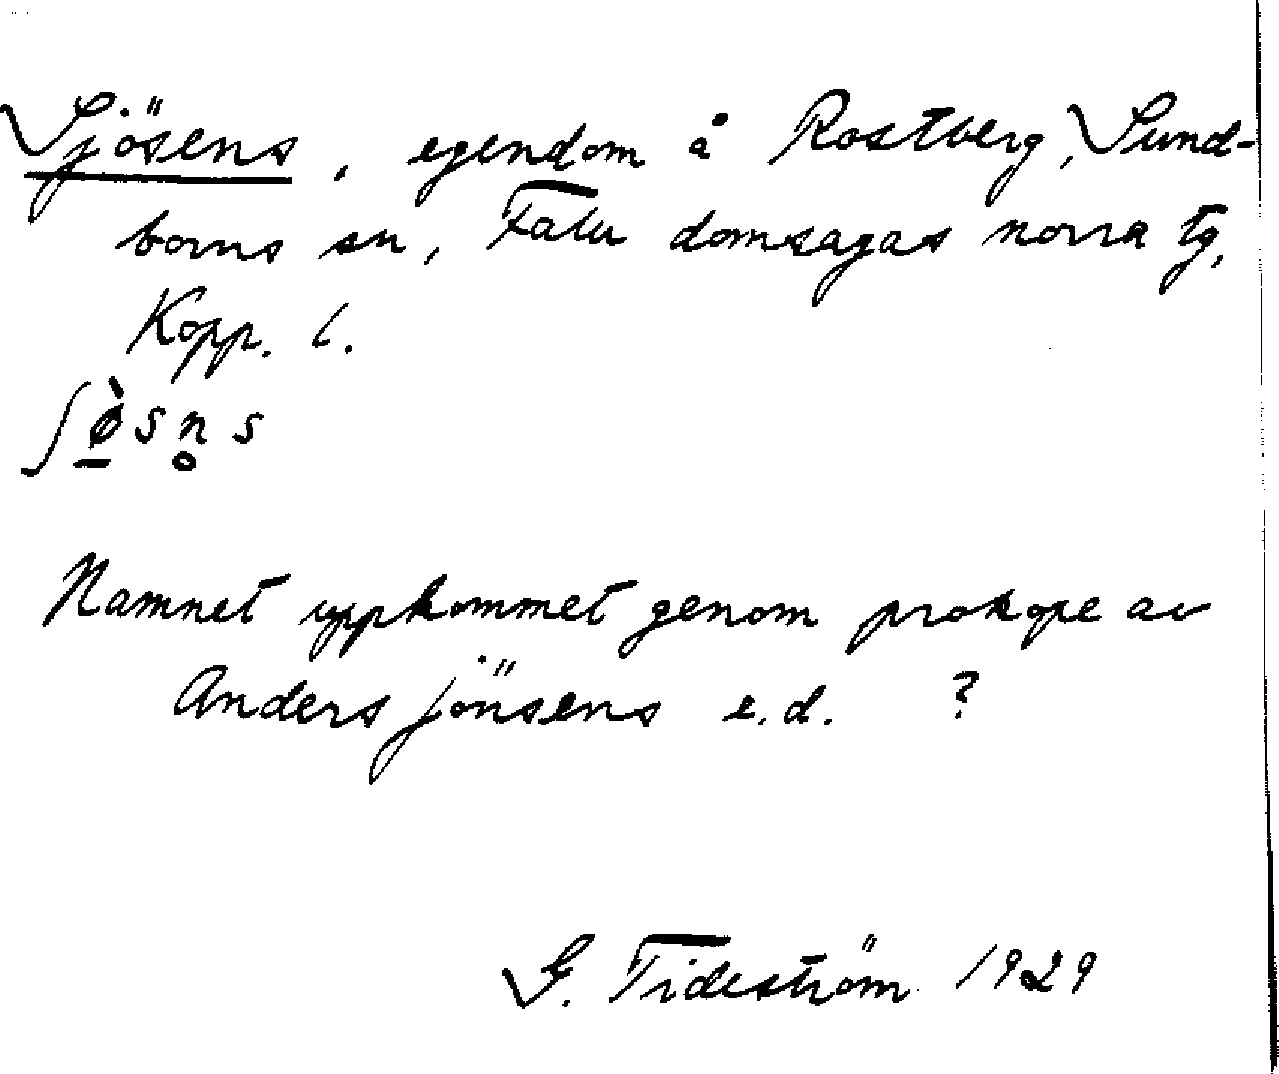 Sjösens, egendom å Rostberg, Sund-
borns sn, Falu domsagas norra tg,
Kopp. l.
ʃø̠̀sn̥s
Namnet uppkommet genom prokope av
Anders jönsens e.d. ?
G. Tideström 1929